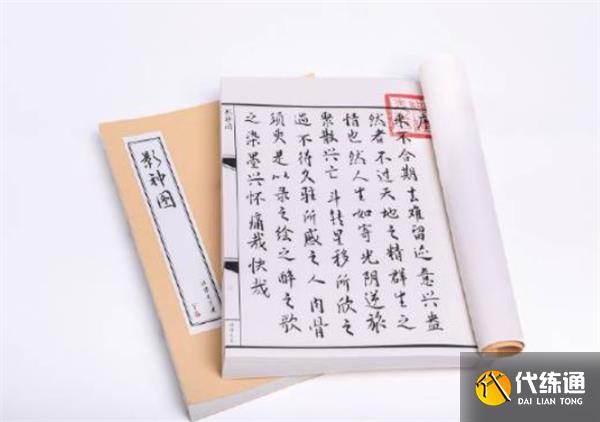 影神图
影神图
序
来不合期去难留迹意兴盎
然者不过天地之精群生之
情也然人生如寄光阴逆旅
聚散兴亡斗转星移所欣之
遇不待久驻所感之人肉骨
须臾是以录之绘之醉之歌
之染墨兴怀痛哉快哉
代练通
DAI LIAN TONG